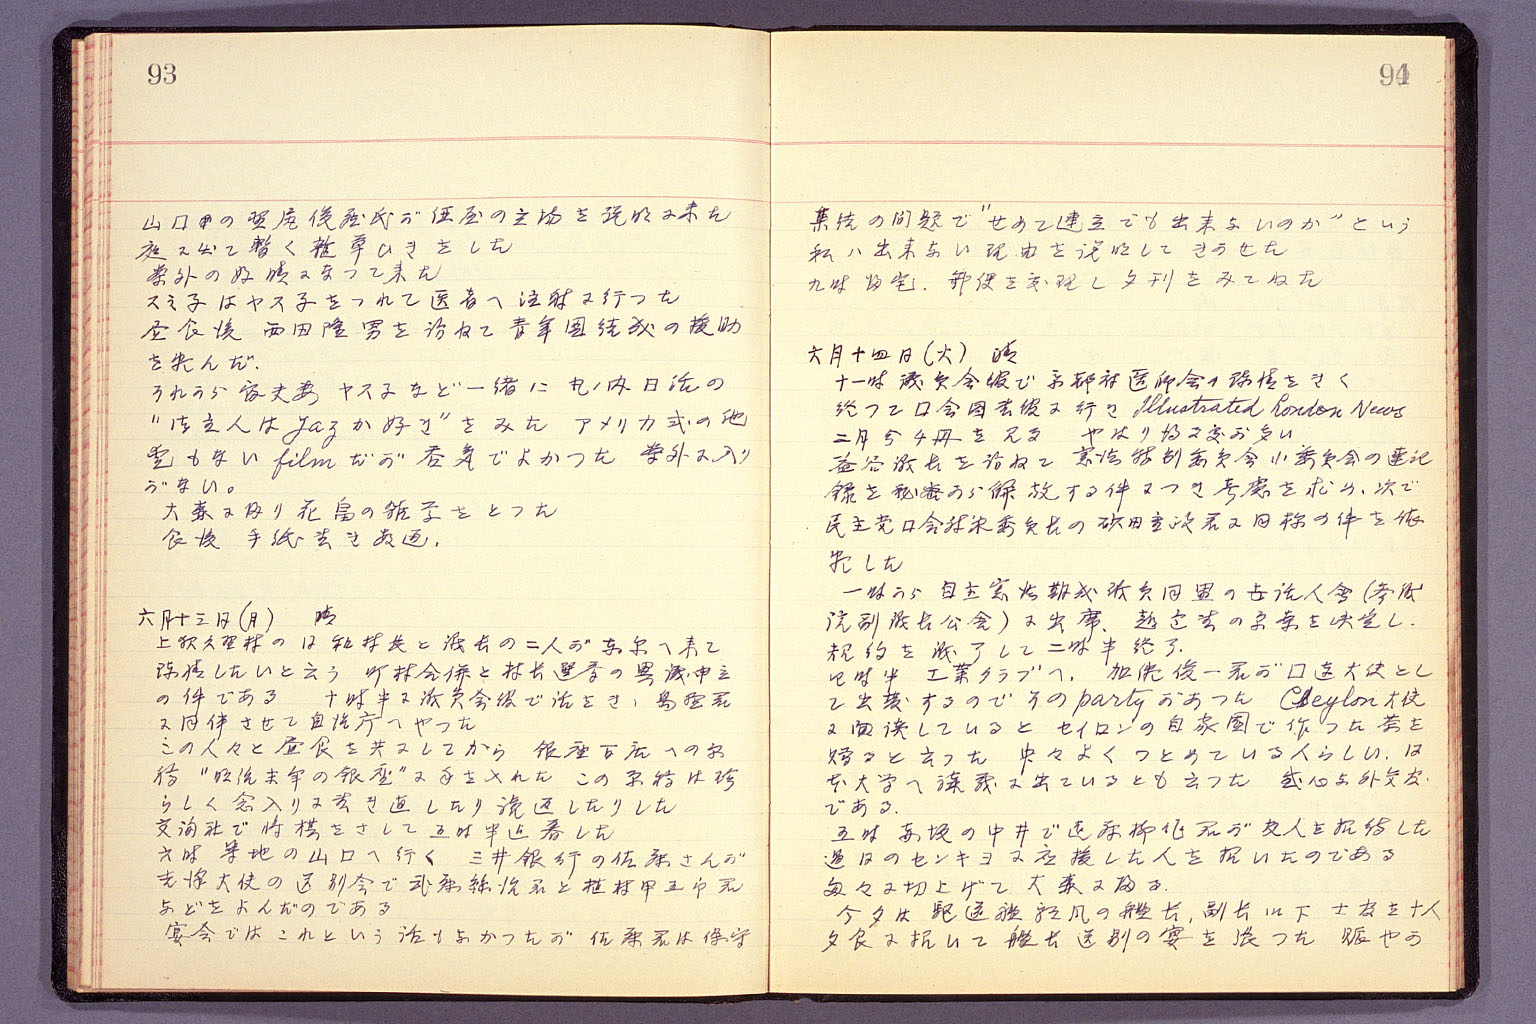 93
山口甲の
庭ニ出て暫く雑草ひきをした
案外の好晴になつて来た
スミ子はヤス子をつれて医者へ注射に行つた
昼食後 西田隆男を訪ねて青年団結成の援助
を頼んだ.
それから ヤス子など一緒に 丸ノ内日活の
は Jaz が好き”をみた アメリカ式の他
愛もない film だが 呑気でよかつた 案外入り
がない。
大森に帰り花畠の雑草をとつた
食後 手紙書き数通.
六月十三日(月) 晴
村長と議長の二人が東京へ来て
陳情したいと云う 町村合併と村長選挙の異議申立
の件である 十時半に議員会館で話をきゝ
に同伴させて自治庁へやつた
この人々と昼食を共にしてから 銀座百店への原
稿 “明治末年の銀座”に手を入れた この原稿は珍
らしく念入りに書き直したり読返したりした
交詢社で将棋をさして五時半迄暮した
六時 築地の山口へ行く 三井銀行の佐藤さんが
大使の送別会で と植村甲五郎君
などをよんだのである
宴会ではこれという話もなかつたが 佐藤君は保守
94
集結の問題で“せめて連立でも出来ないのか”という
私ハ出来ない理由を説明してきかせた
九時帰宅. 郵便を処理し夕刊をみてねた
六月十四日(火) 晴
十一時 議員会館で京都府医師会の陳情をきく
終つて口会図書館に行き Illustrated London News
二月分4冊を見る やはり
益谷議長を訪ねて 憲法特別委員会小委員会の速記
録を秘密から解放する件につき考慮を求め、次で
民主党口会対策委員長の砂田重政君に同様の件を依
頼した
一時から 自主憲法期成議員同盟の世話人会(参議
院副議長公舎)に出席、趣意書の原案を決定し.
規約を議了して二時半終了.
四時半 工業クラブへ. 加瀬俊一君が口連大使とし
て出発するのでその party があつた Ceylon 大使
に面談していると セイロンの自家園で作つた茶を
贈ると云つた 中々よくつとめている人らしい. 日
本大学へ講義に出ているとも云つた 感心な外交官
である.
五時 赤坂の中井で 君が友人を招待した
過日のセンキヨに応援した人を招いたのである
匆々に切上げて 大森に帰る.
今夕は 艦長, 副長以下士官を十人
夕食に招いて 艦長送別の宴を張つた 賑やか